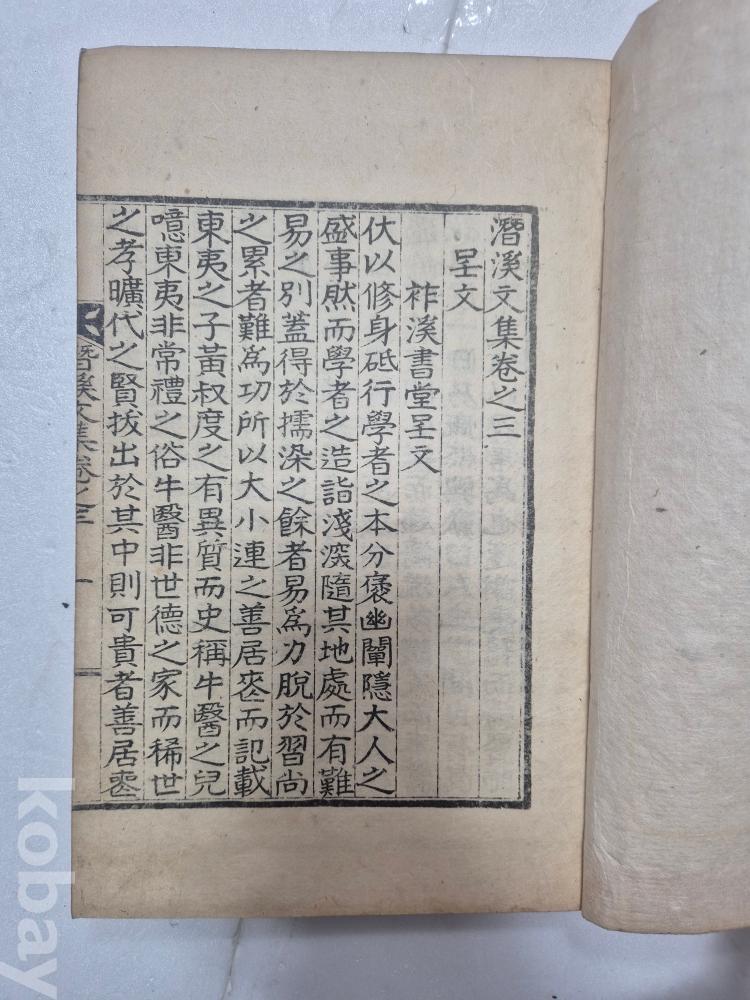 潛溪文集卷之三
呈文
祚溪書堂呈文
伏以修身砥行學者之本分褒幽闡隱大人之
盛事然而學者之造詣淺深隨其地處而有難
易之別蓋得於擩染之餘者易爲力脫於習尚
之累者難爲功所以大小連之善居喪而記載
東夷之子黃叔度之有異質而史稱牛醫之兒
噫東夷非常禮之俗牛醫非世德之家而稀世
之孝曠代之賢拔出於其中則可貴者善居喪
潛溪文集卷之三 一
kobay